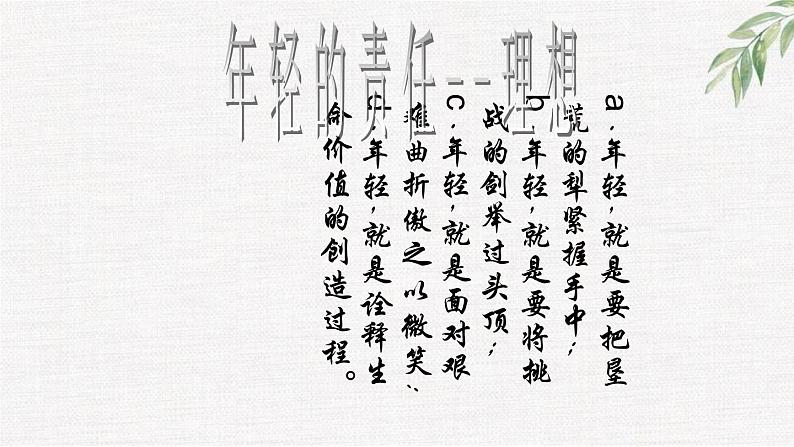 年轻的责任--理想
a.年轻,就是要把垦
荒的犁紧握手中;
b.年轻,就是要将挑
战的剑举过头顶;
c.年轻,就是面对艰
难曲折傲之以微笑;
d.年轻,就是诠释生
命价值的创造过程。